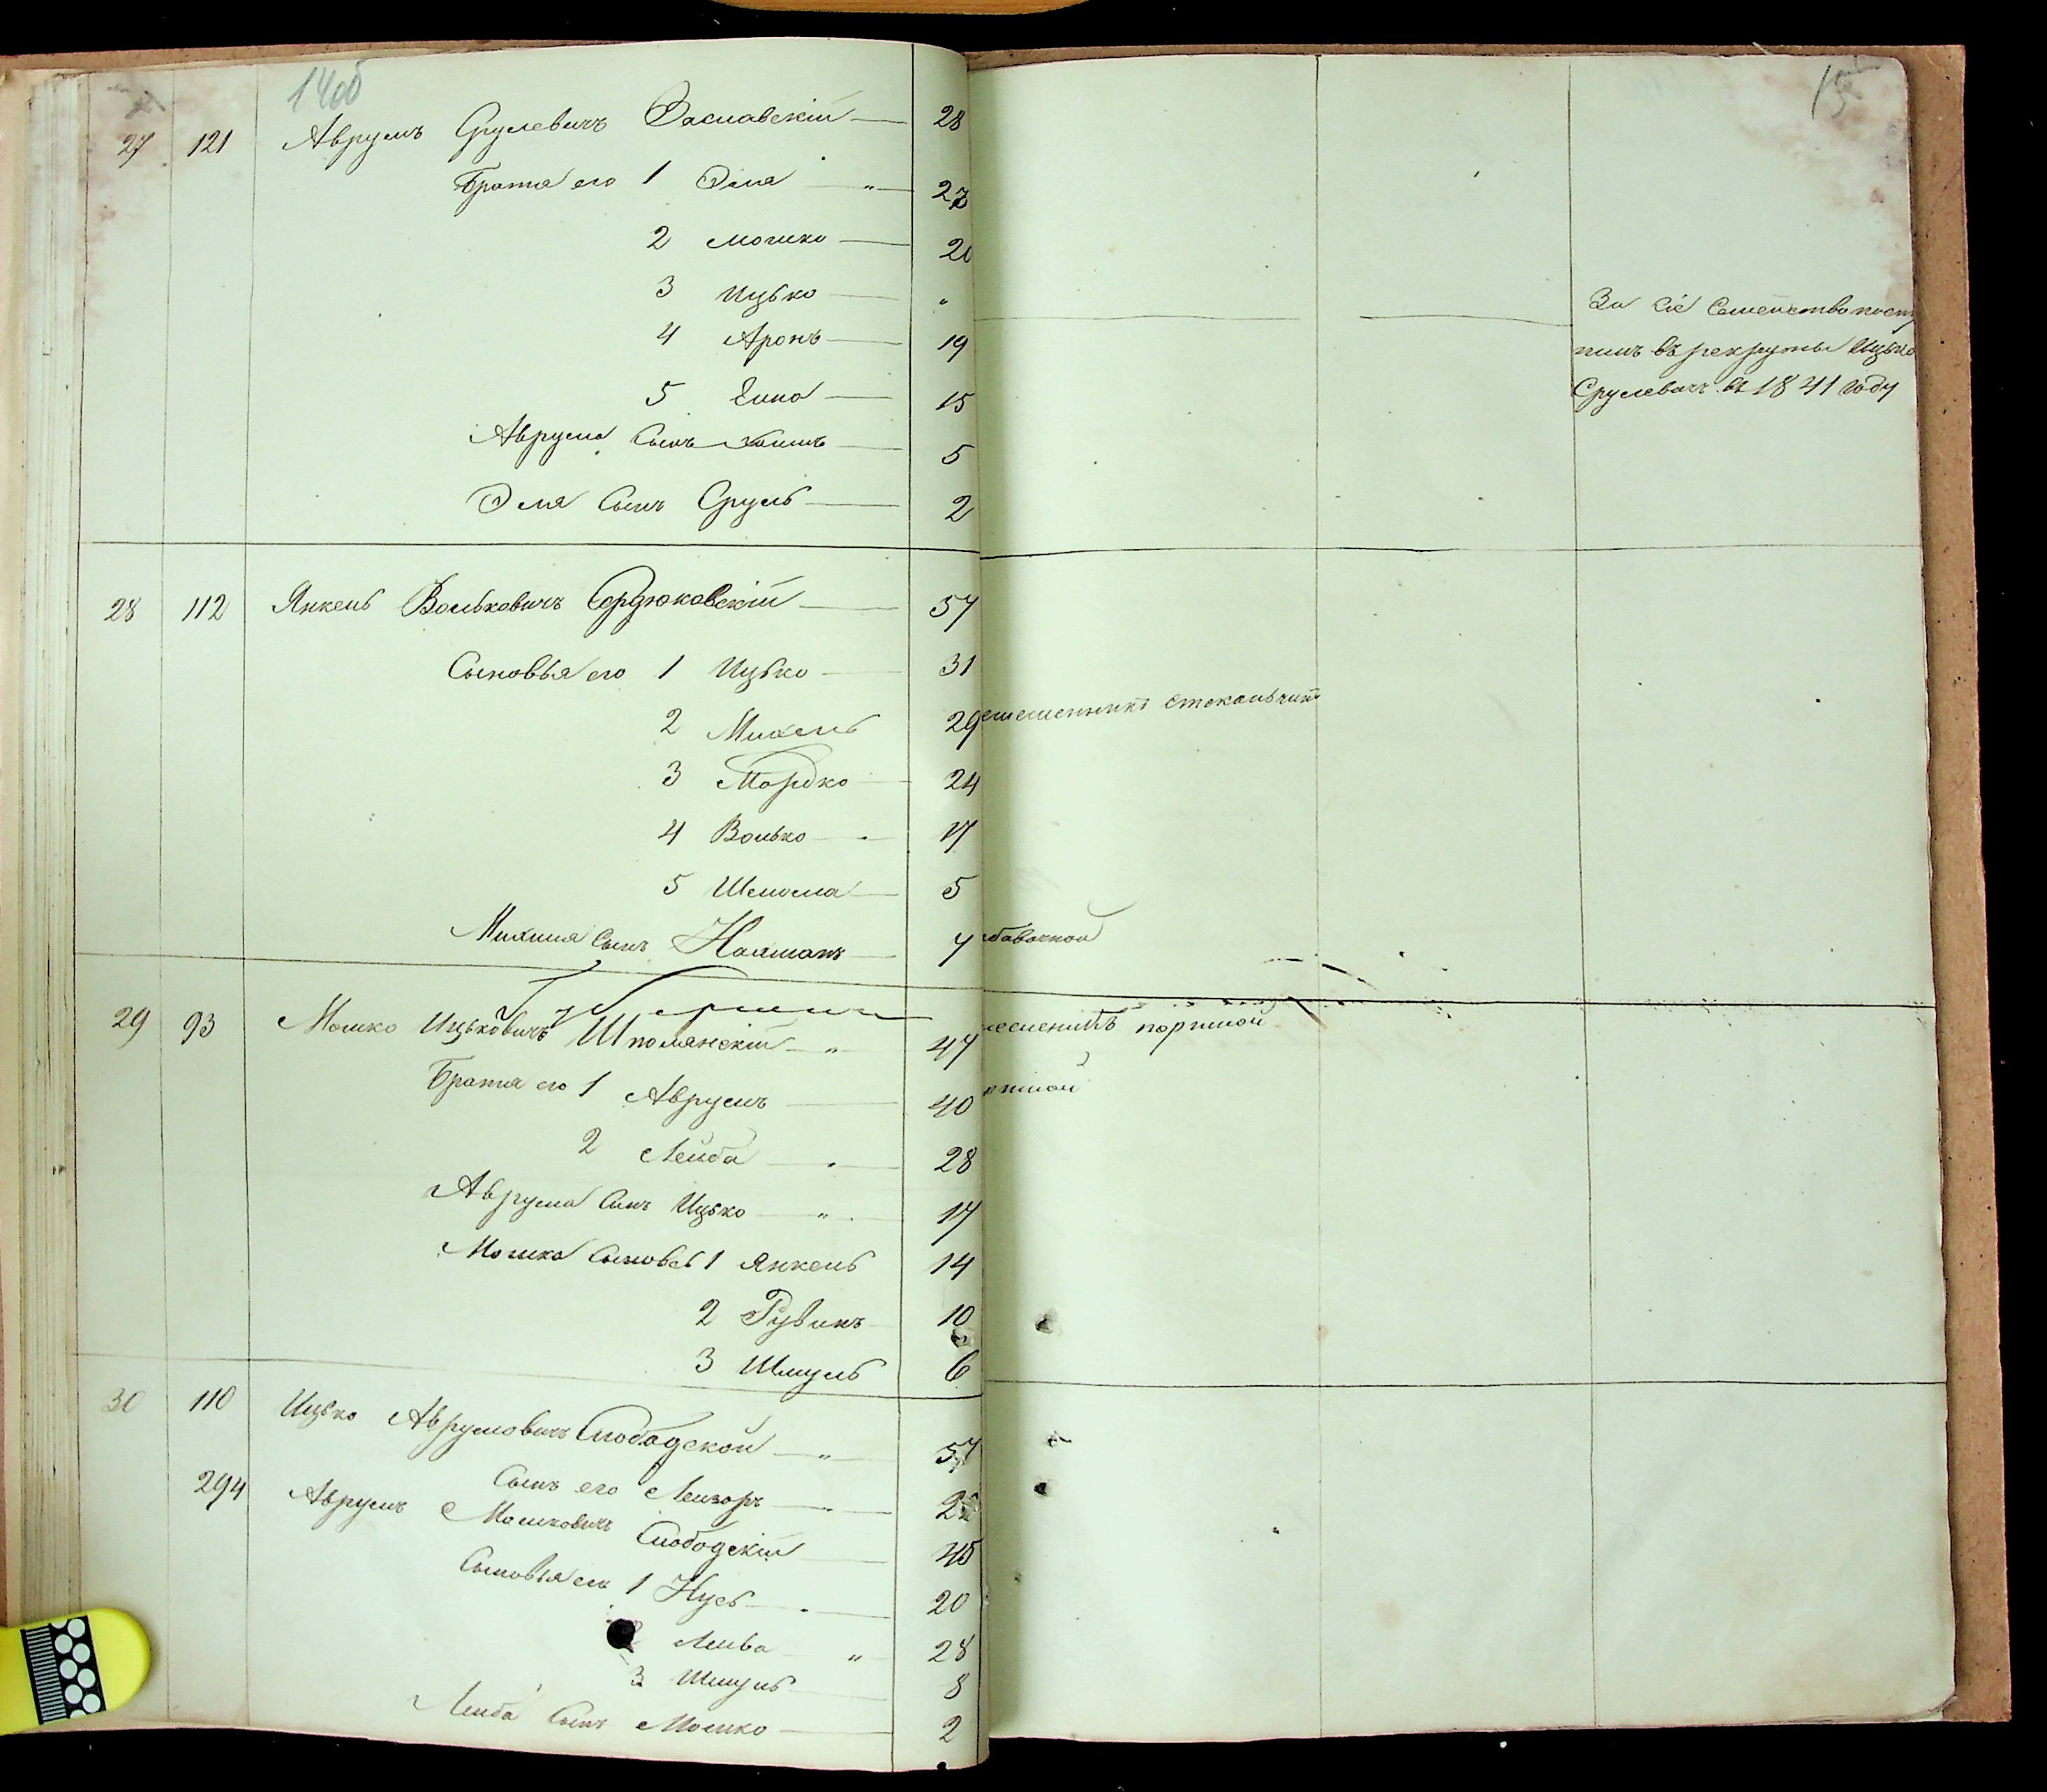 14об
27 121 Аврумъ Срулевичъ Заславскій — 28
Братья его 1 Эля — " — 27
2 Мошко — 20
3 Ицько — "
4 Аронъ — 19
5 Елио — 15
Аврума сынъ Хаимъ — 5
Эля сынъ Сруль — 2
28 112 Янкель Вольковичъ Сердюковскій — 57
Сыновья его 1 Ицько — 31
2 Михель 29
3 Мордко — 24
4 Волько — 17
5 Шемома — 5
Михиля сынъ Нахманъ — 7
29 93 Мошко Ицьковичъ Шполянскій — " 47
Братья его 1 Аврумъ — 40
2 Лейба — 28
Аврума сынъ Ицько — " 17
Мошка сыновья 1 Янкель 14
2 Рувинъ 10
3 Шмуль 6
30 110 Ицько Аврумовичъ Слободской — " 57
Сынъ его Лейзоръ —
294 Аврумъ Мошковичъ Слободскій — 45
Сыновья его 1 Нусь — 20
Лейба " 28
3 Шмуль — 8
Лейба сынъ Мошко — 2
15
За сіе Семейство посту
пилъ въ рекруты Ицько
Срулевичъ въ 1841 году
емесленникъ стекольчикъ
абавочной
месленикъ портной
ртной